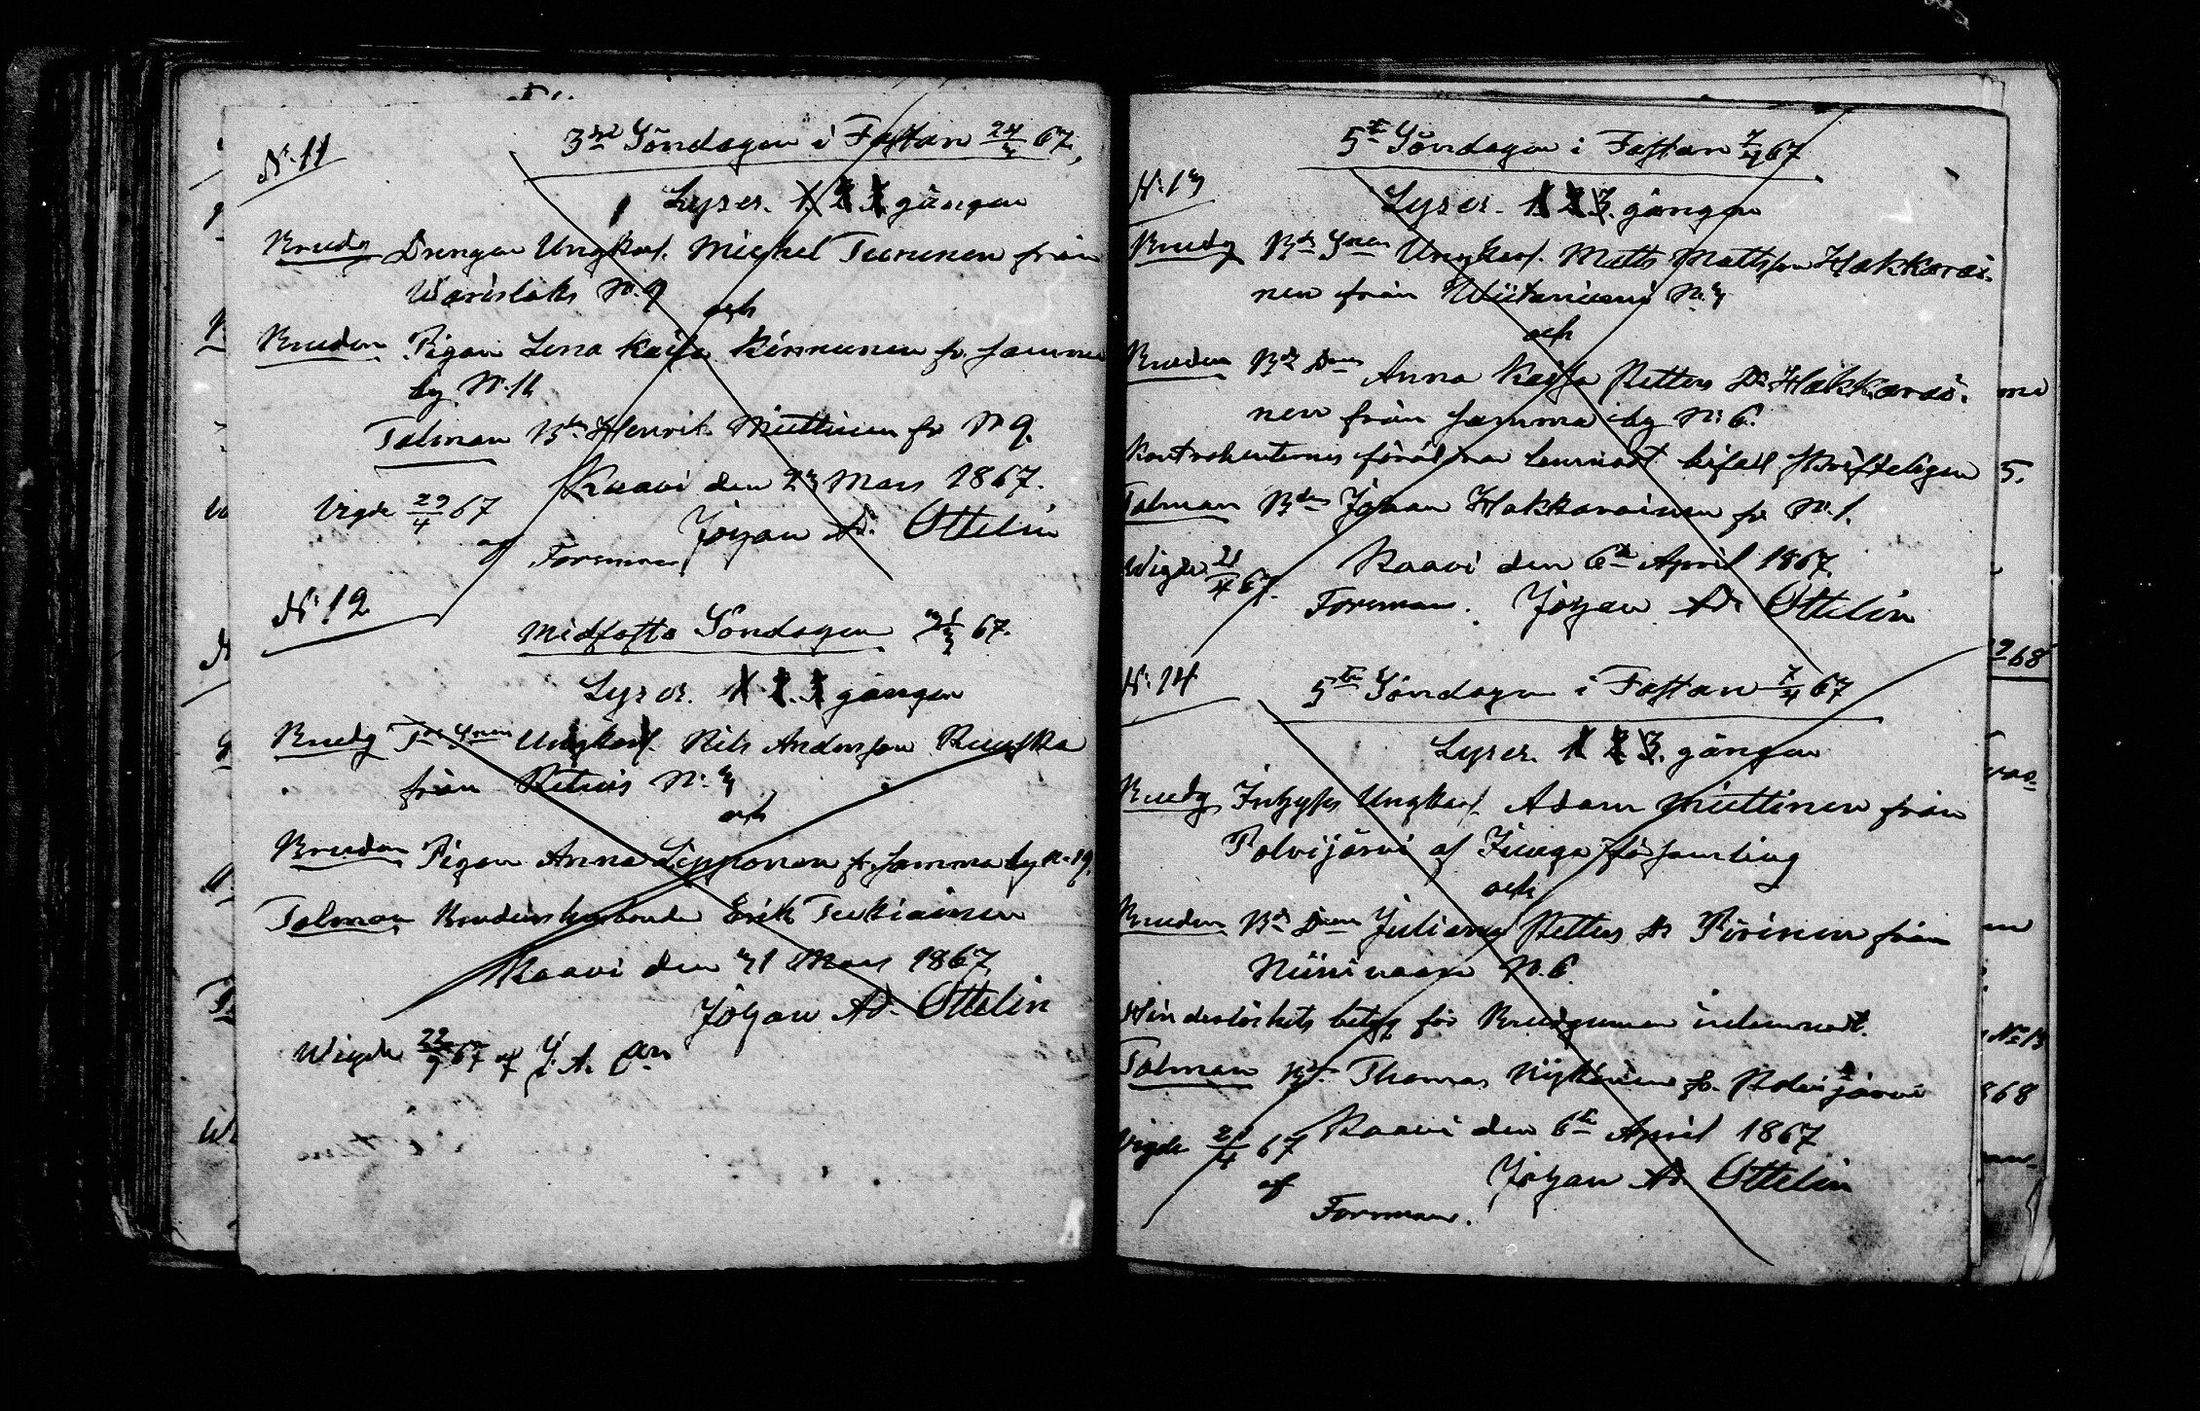 N:11
3die Söndagen i Fastan 24/3 67,
Lyses. 1. 2. 3 gången
Brudg Drengen Ungkarl. Michel Turunen från
Warislaks N. 9
och
Bruden Pigan Lena Kaisa Kinnunen fr. samma
by N. 11
Talman Bdn Henrik Miettinen fr N 9.
Kaavi den 23 Mars 1867.
Johan Ad. Ottelin
Vigde 29/4 67
af Forsman
N: 12
Midfasto Söndagen 31/3 67.
Lyses. 1. 2. 3 gången
Brudg Ungkarl. Nils Andersson Ruuska
från N. 3
och
Bruden Pigan Anna Lipponen fr. samma by N. 19.
Talman Brudens husbonde Erik Tukiainen
Kaavi den 31 Mars 1867
Johan Ad. Ottelin
Wigde 22/9 67 af J. A. On
N: 13
5te Söndagen i Fastan 7/4 67
Lyses. 1 2 3. gången
Brudg Bd Snen Ungkarl. Matts Mattsson Hakkarai-
nen från N. 3
och
Bruden Bd Dn Anna Kaisa Petters Dr Hakkarai-
nen från samma by N: 6.
Kontrahenternes föräldrar lemnat bifall skrifteligen
Talman Bdn Johan Hakkarainen fr N. 1.
Kaavi den 6te April 1867.
Wigde 21/4 67.
Forsman. Johan Ad Ottelin
N: 14
5te Söndagen i Fastan 7/4 67
Lyses. 1 2 3. gången
Brudg Inhyses Ungkarl. Adam Miettinen från
Polvijärvi af Juuga församling
och
Bruden Bd Dn Juliana Petters Dr Pirinen från
Niinivaara N. 6.
Hinderlöshets betyg för Brudgumen inlemnat.
Talman Thomas Nykänen fr. Polvijärvi
Kaavi den 6te April 1867
Vigde 21/4 67
Johan Ad Ottelin
af
Forsman.